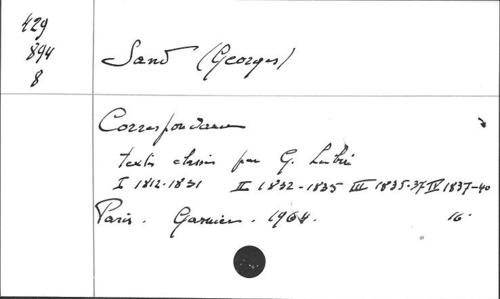 429
894
8
Sand (Georges)
Correspondance
textes classés par G. Lubin
I 1812-1831 II 1832-1835 III 1835-37 IV 1837-40
Paris. Garnier. 1964. 16.